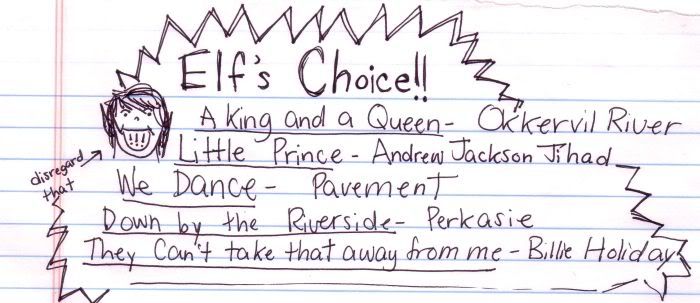 Elf's Choice!!
A King and a Queen - Okkervil River
Little Prince - Andrew Jackson Jihad
disregard that
We Dance - Pavement
Down by the Riverside - Perkasie
They Can't take that away from me - Billie Holiday